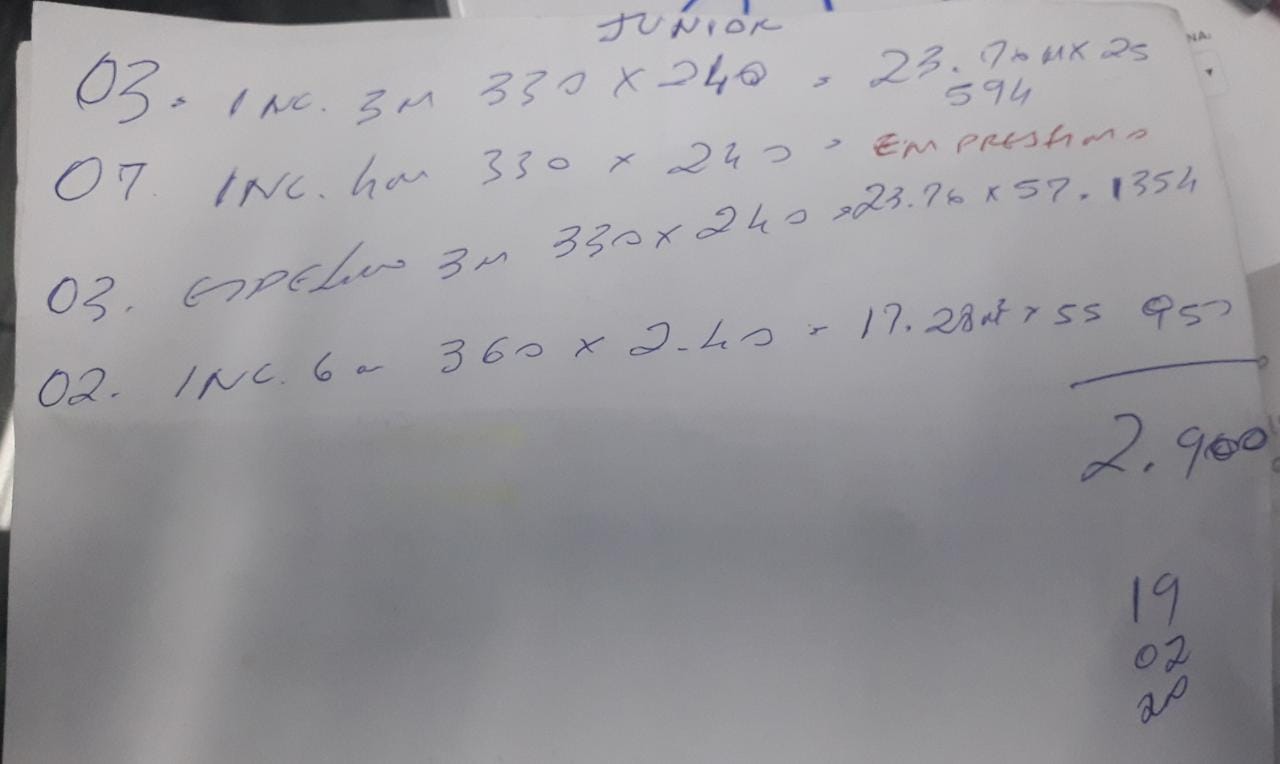 JUNIOR
03. INC. 3M 330 X 240 = 23.76 M X 25
594
07. INC. 4M 330 X 240 = EMPRESTIMO
03. ESPELHO 3M 330 X 240 = 23.76 X 57. 1354
02. INC. 6M 360 X 2.40 = 17.28 M² X 55 950
2.900
19
02
20
NA: